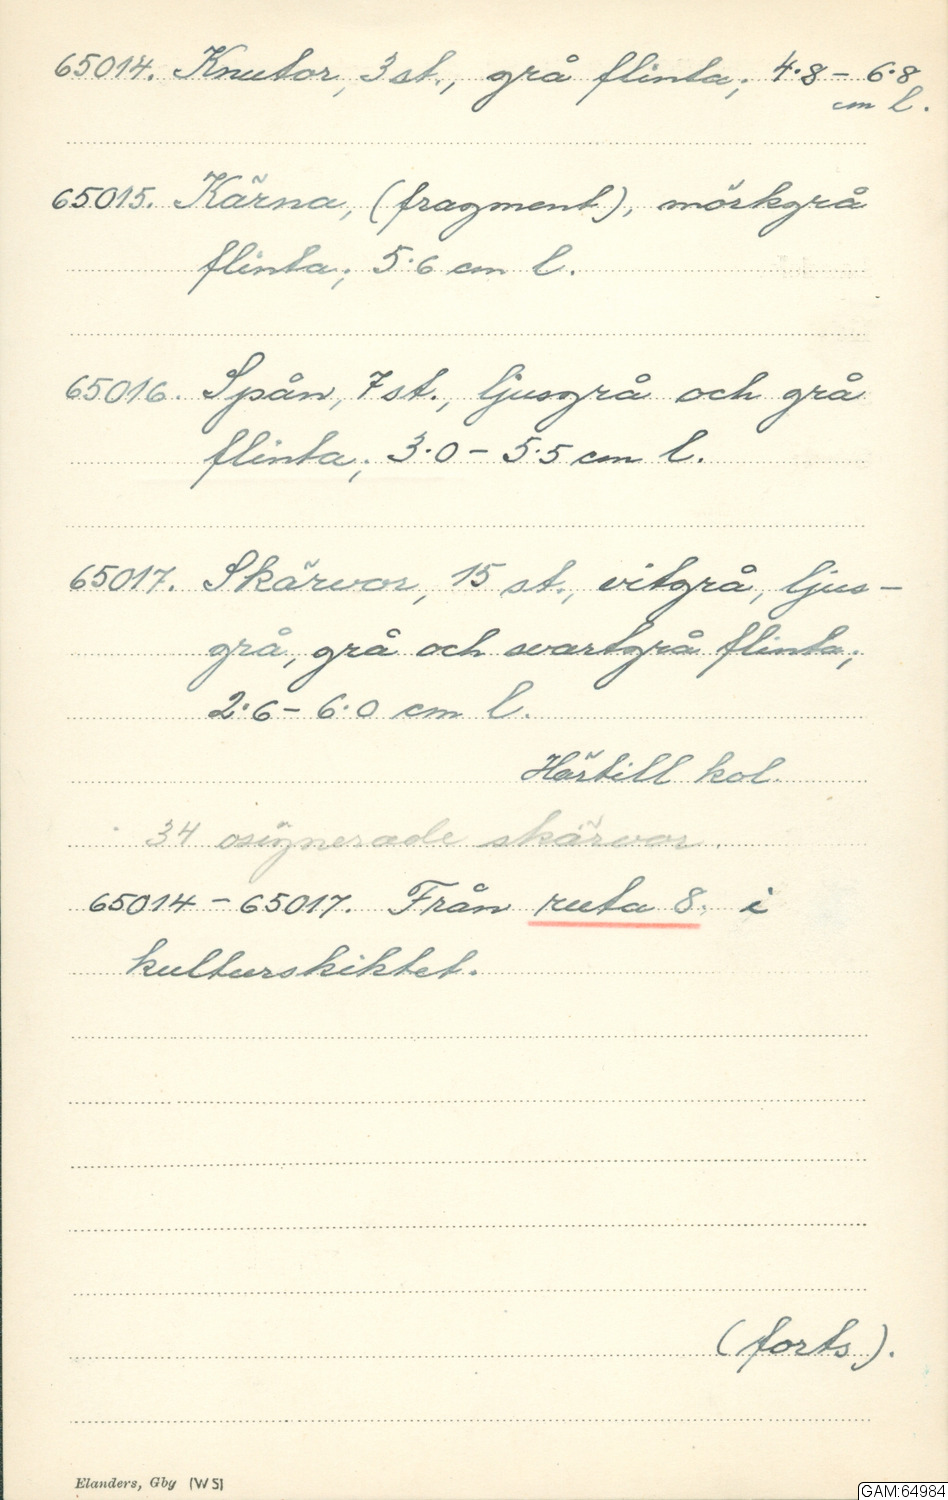 65014. Knutor, 3 st., grå flinta; 4.8 – 6.8
cm l.
65015. Kärna, (fragment), mörkgrå
flinta; 5.6 cm l.
65016. Spån, 7 st., ljusgrå och grå
flinta; 3.0 – 5.5 cm l.
65017. Skärvor, 15 st., vitgrå, ljus-
grå, grå och svartgrå flinta;
2.6 – 6.0 cm l.
Härtill kol.
34 osignerade skärvor.
65014 – 65017. Från ruta 8. i
kulturskiktet.
(forts).
Elanders, Gby (W5)
GAM:64984